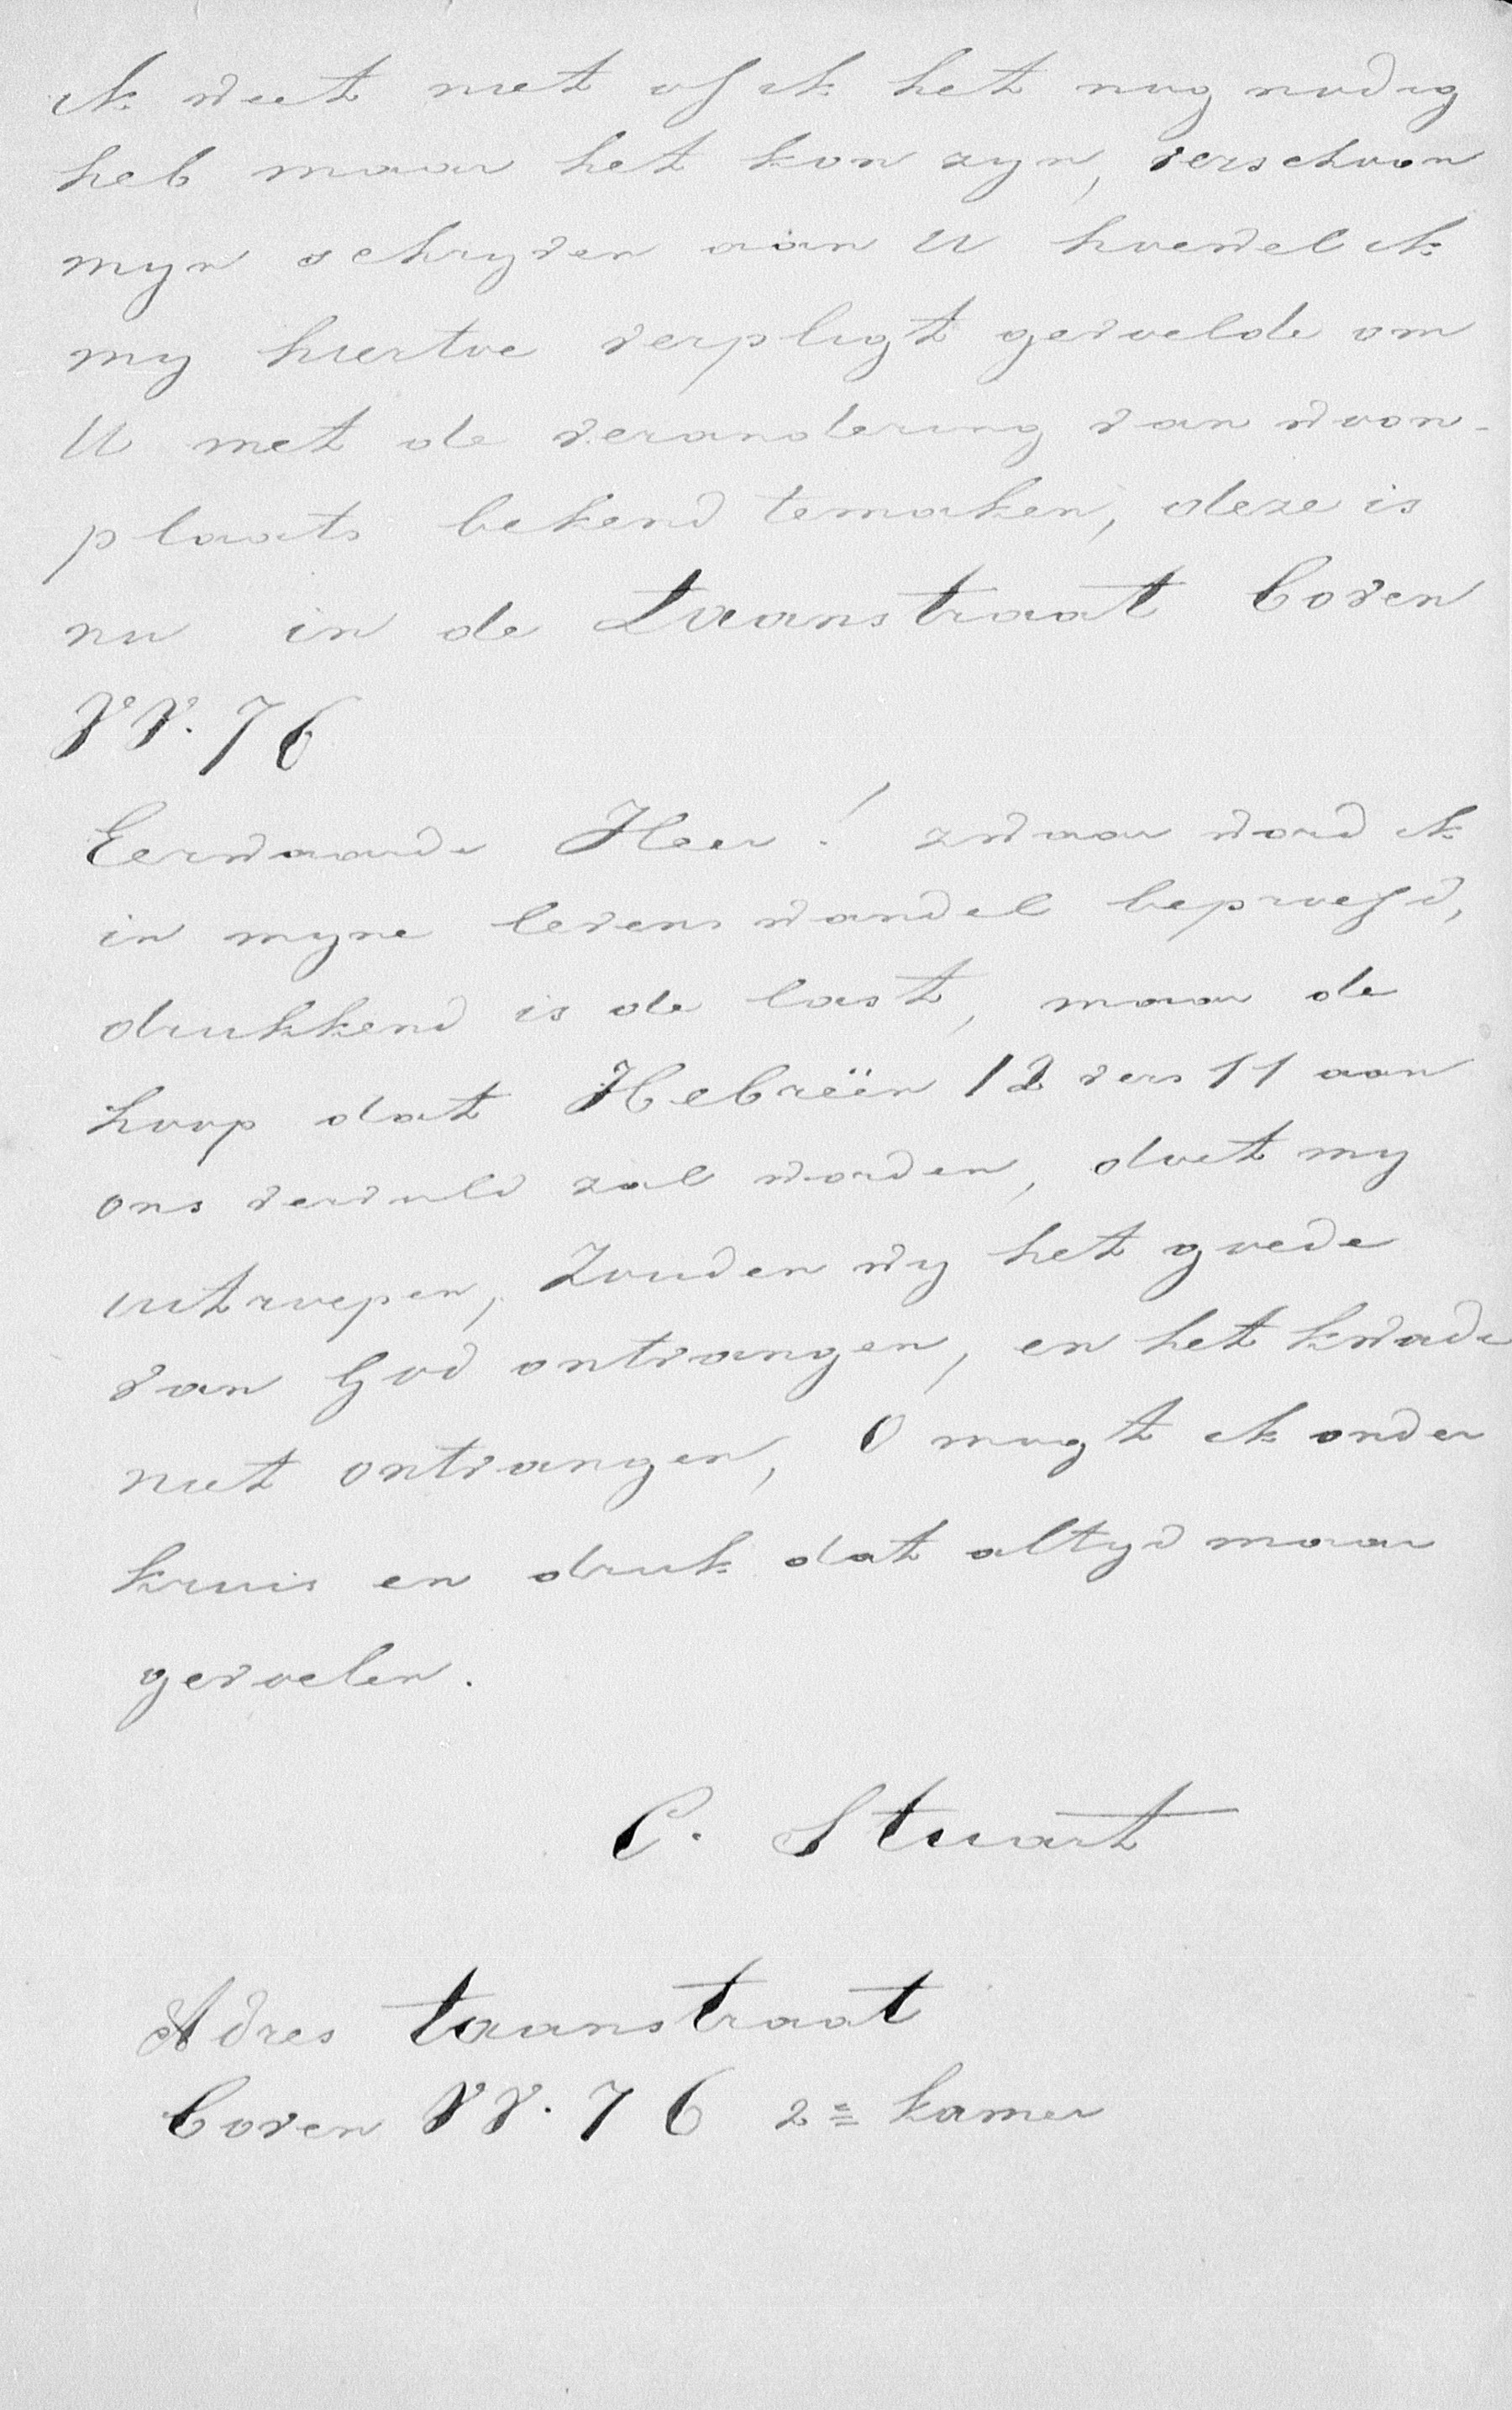 ik weet niet of ik het nog nodig
heb maar het kon zyn, verschoon
myn schryven aan U hoewel ik
my hiertoe verpligt gevoelde om
U met de verandering van woon-
plaats bekend temaken, deze is
nu in de Laanstraat Boven
VV. 76
Eerwaarde Heer! zwaar word ik
in myne levens wandel beproefd,
drukkend is de last, maar de
hoop dat Hebreën 12 vers 11 aan
ons vervuld zal worden, doet my
uitroepen, Zouden wy het goede
van God ontvangen, en het kwade
niet ontvangen, O mogt ik onder
kruis en druk dat altyd maar
gevoelen.
C. Stuart
Adres Laanstraat
Boven VV. 76 2e kamer